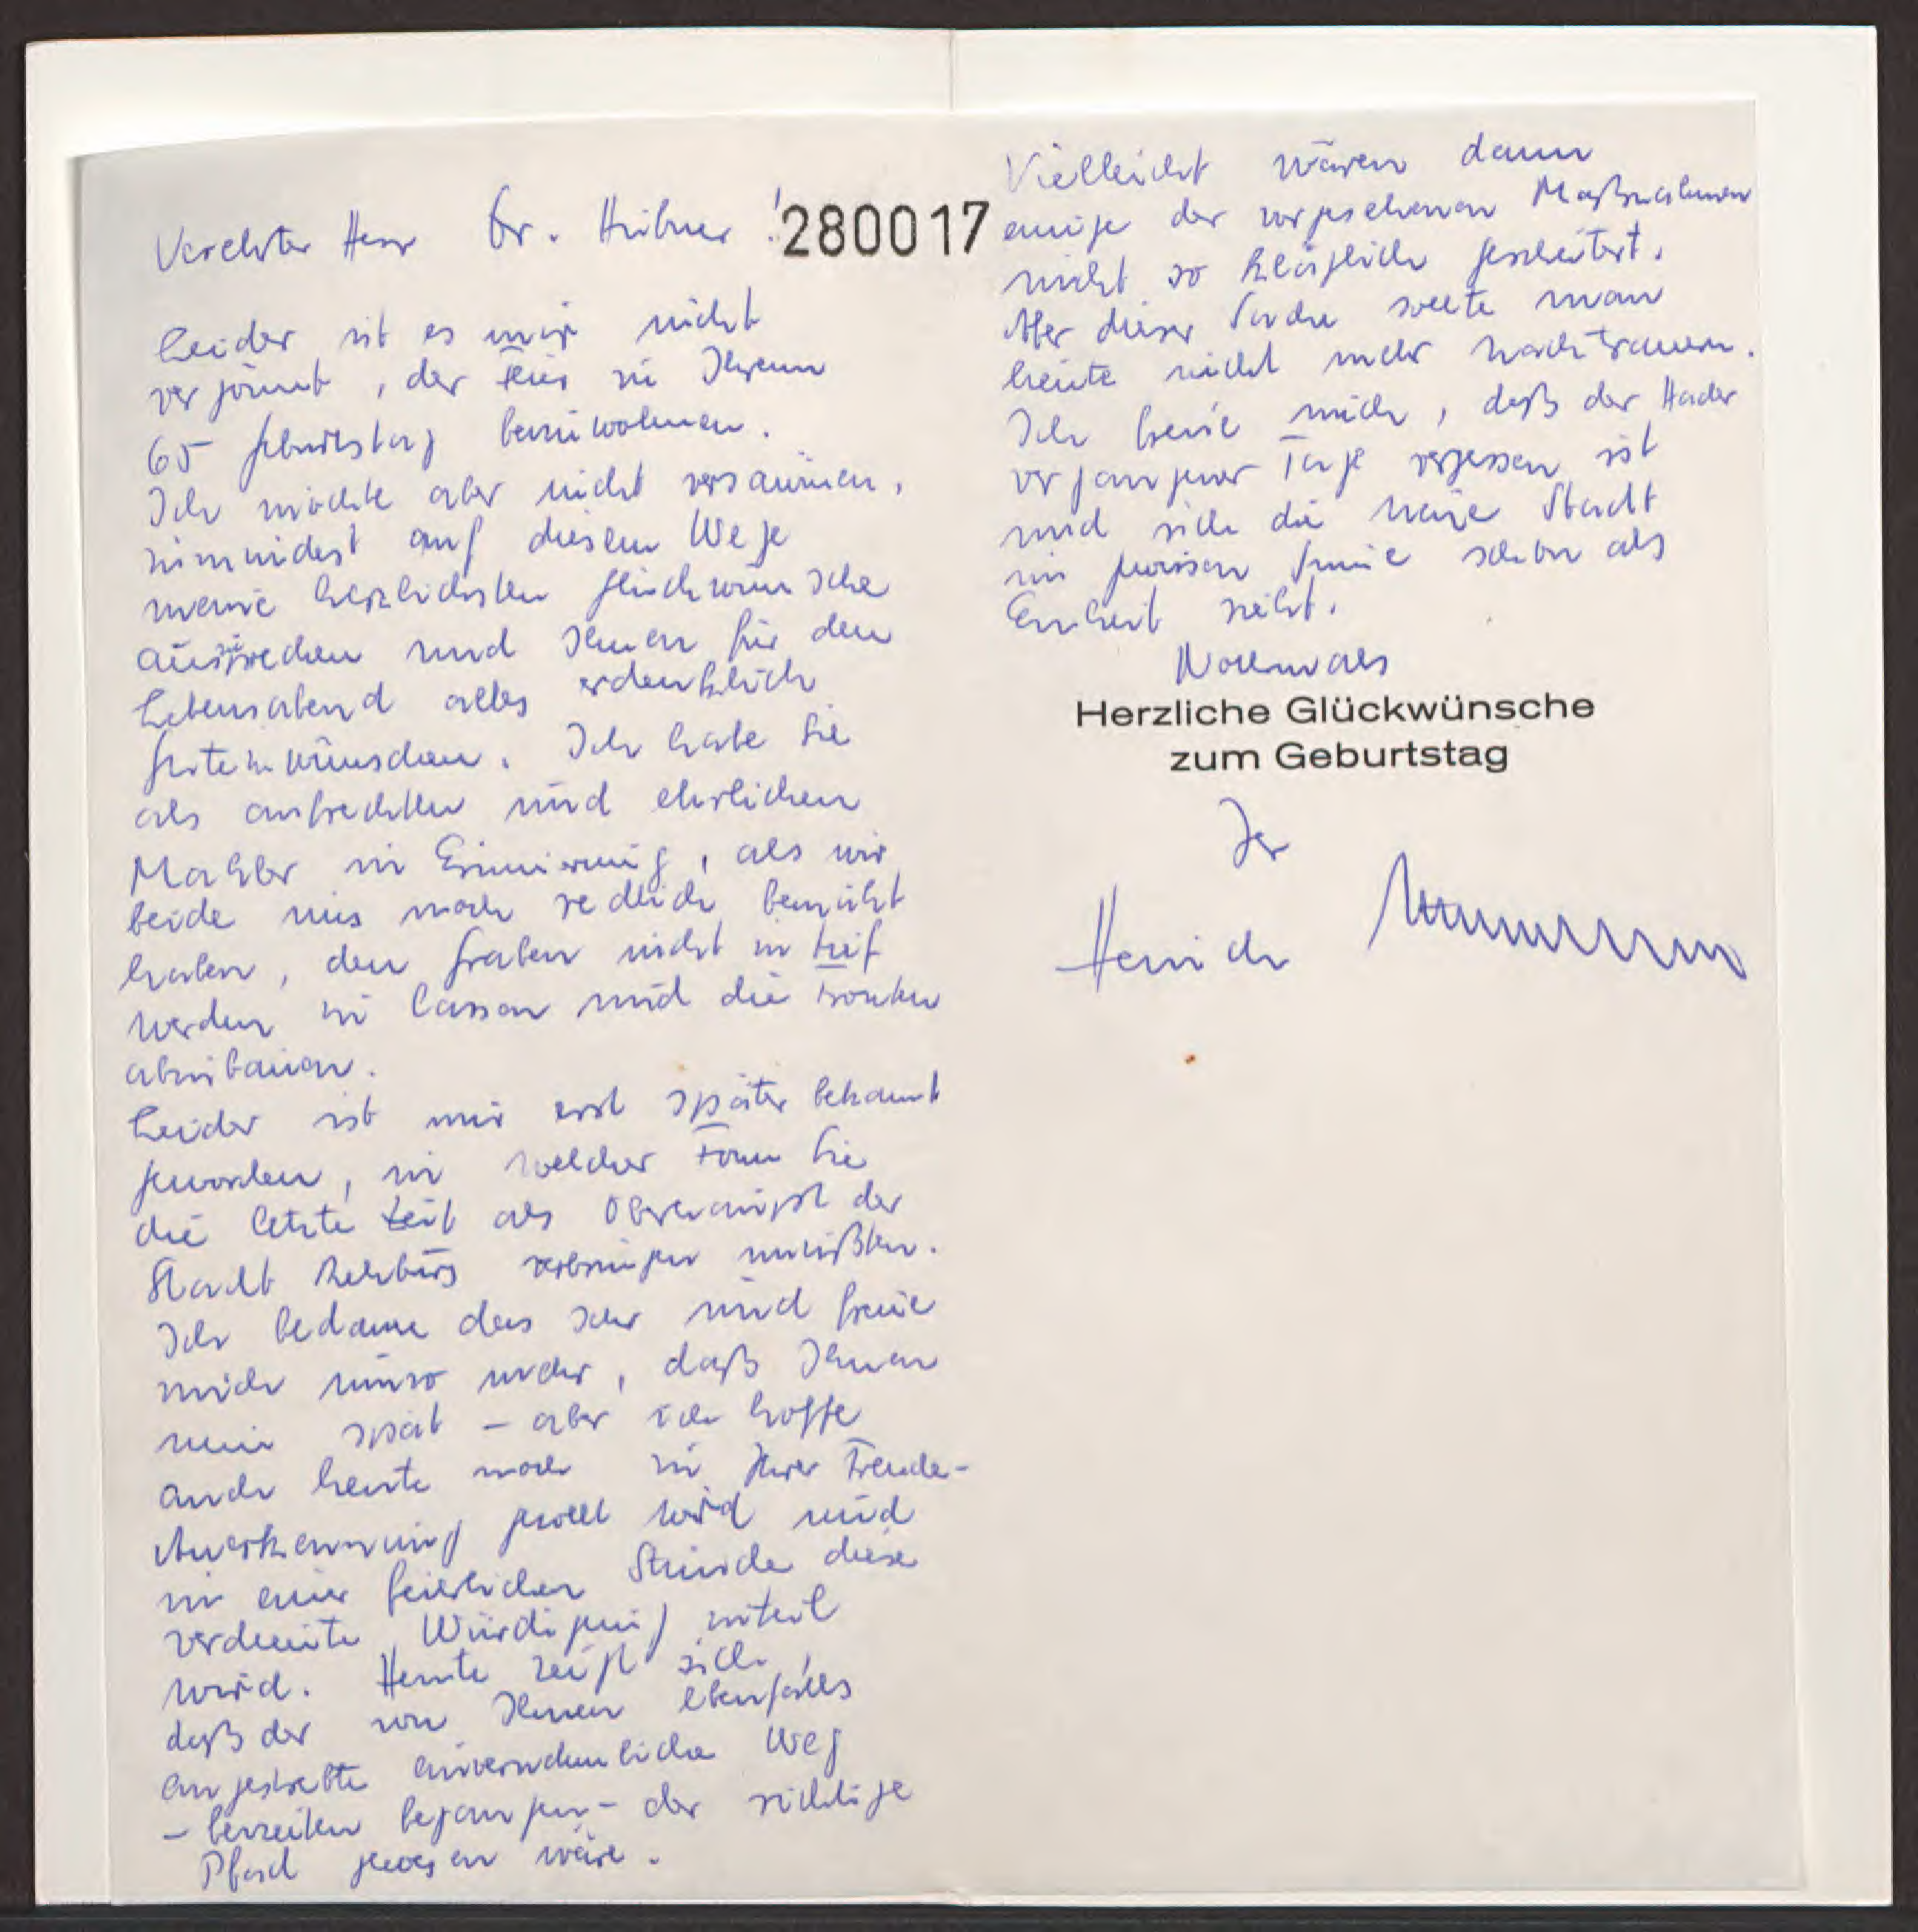 Verehrter Herr Dr. Hübner!
280017
Leider ist es mir nicht
vergönnt, der Feier zu Ihrem
65 Geburtstag beizuwohnen.
Ich möchte aber nicht versäumen,
zumindest auf diesem Wege
meine herzlichsten Glückwünsche
auszusprechen und Ihnen für den
Lebensabend alles erdenklich
Gute zu wünschen. Ich habe Sie
als aufrechten und ehrlichen
Makler in Erinnerung, als wir
beide uns noch redlich bemüht
haben, den Graben nicht zu tief
werden zu lassen und die Fronten
abzubauen.
Leider ist mir erst später bekannt
geworden, in welcher Form Sie
die letzte Zeit als der
Stadt Rehburg verbringen mußten.
Ich bedaure das sehr und freue
mich umso mehr, daß Ihnen
nun spät – aber ich hoffe
auch heute noch zu Ihrer Freude –
Anerkennung gezollt wird und
in einer feierlichen Stunde diese
verdiente Würdigung zuteil
wird. Heute zeigt sich,
daß der von Ihnen ebenfalls
angestrebte einvernehmliche Weg
– beizeiten begangen – der richtige
Pfad gewesen wäre.
Vielleicht wären dann
einige der vorgesehenen Maßnahmen
nicht so kläglich gescheitert.
Aber dieser Sache sollte man
heute nicht mehr nachtrauern.
Ich freue mich, daß der Hader
vergangener Tage vergessen ist
und sich die neue Stadt
im gewissen Sinne schon als
Einheit sieht.
Nochmals
Herzliche Glückwünsche
zum Geburtstag
Ihr
Heinrich